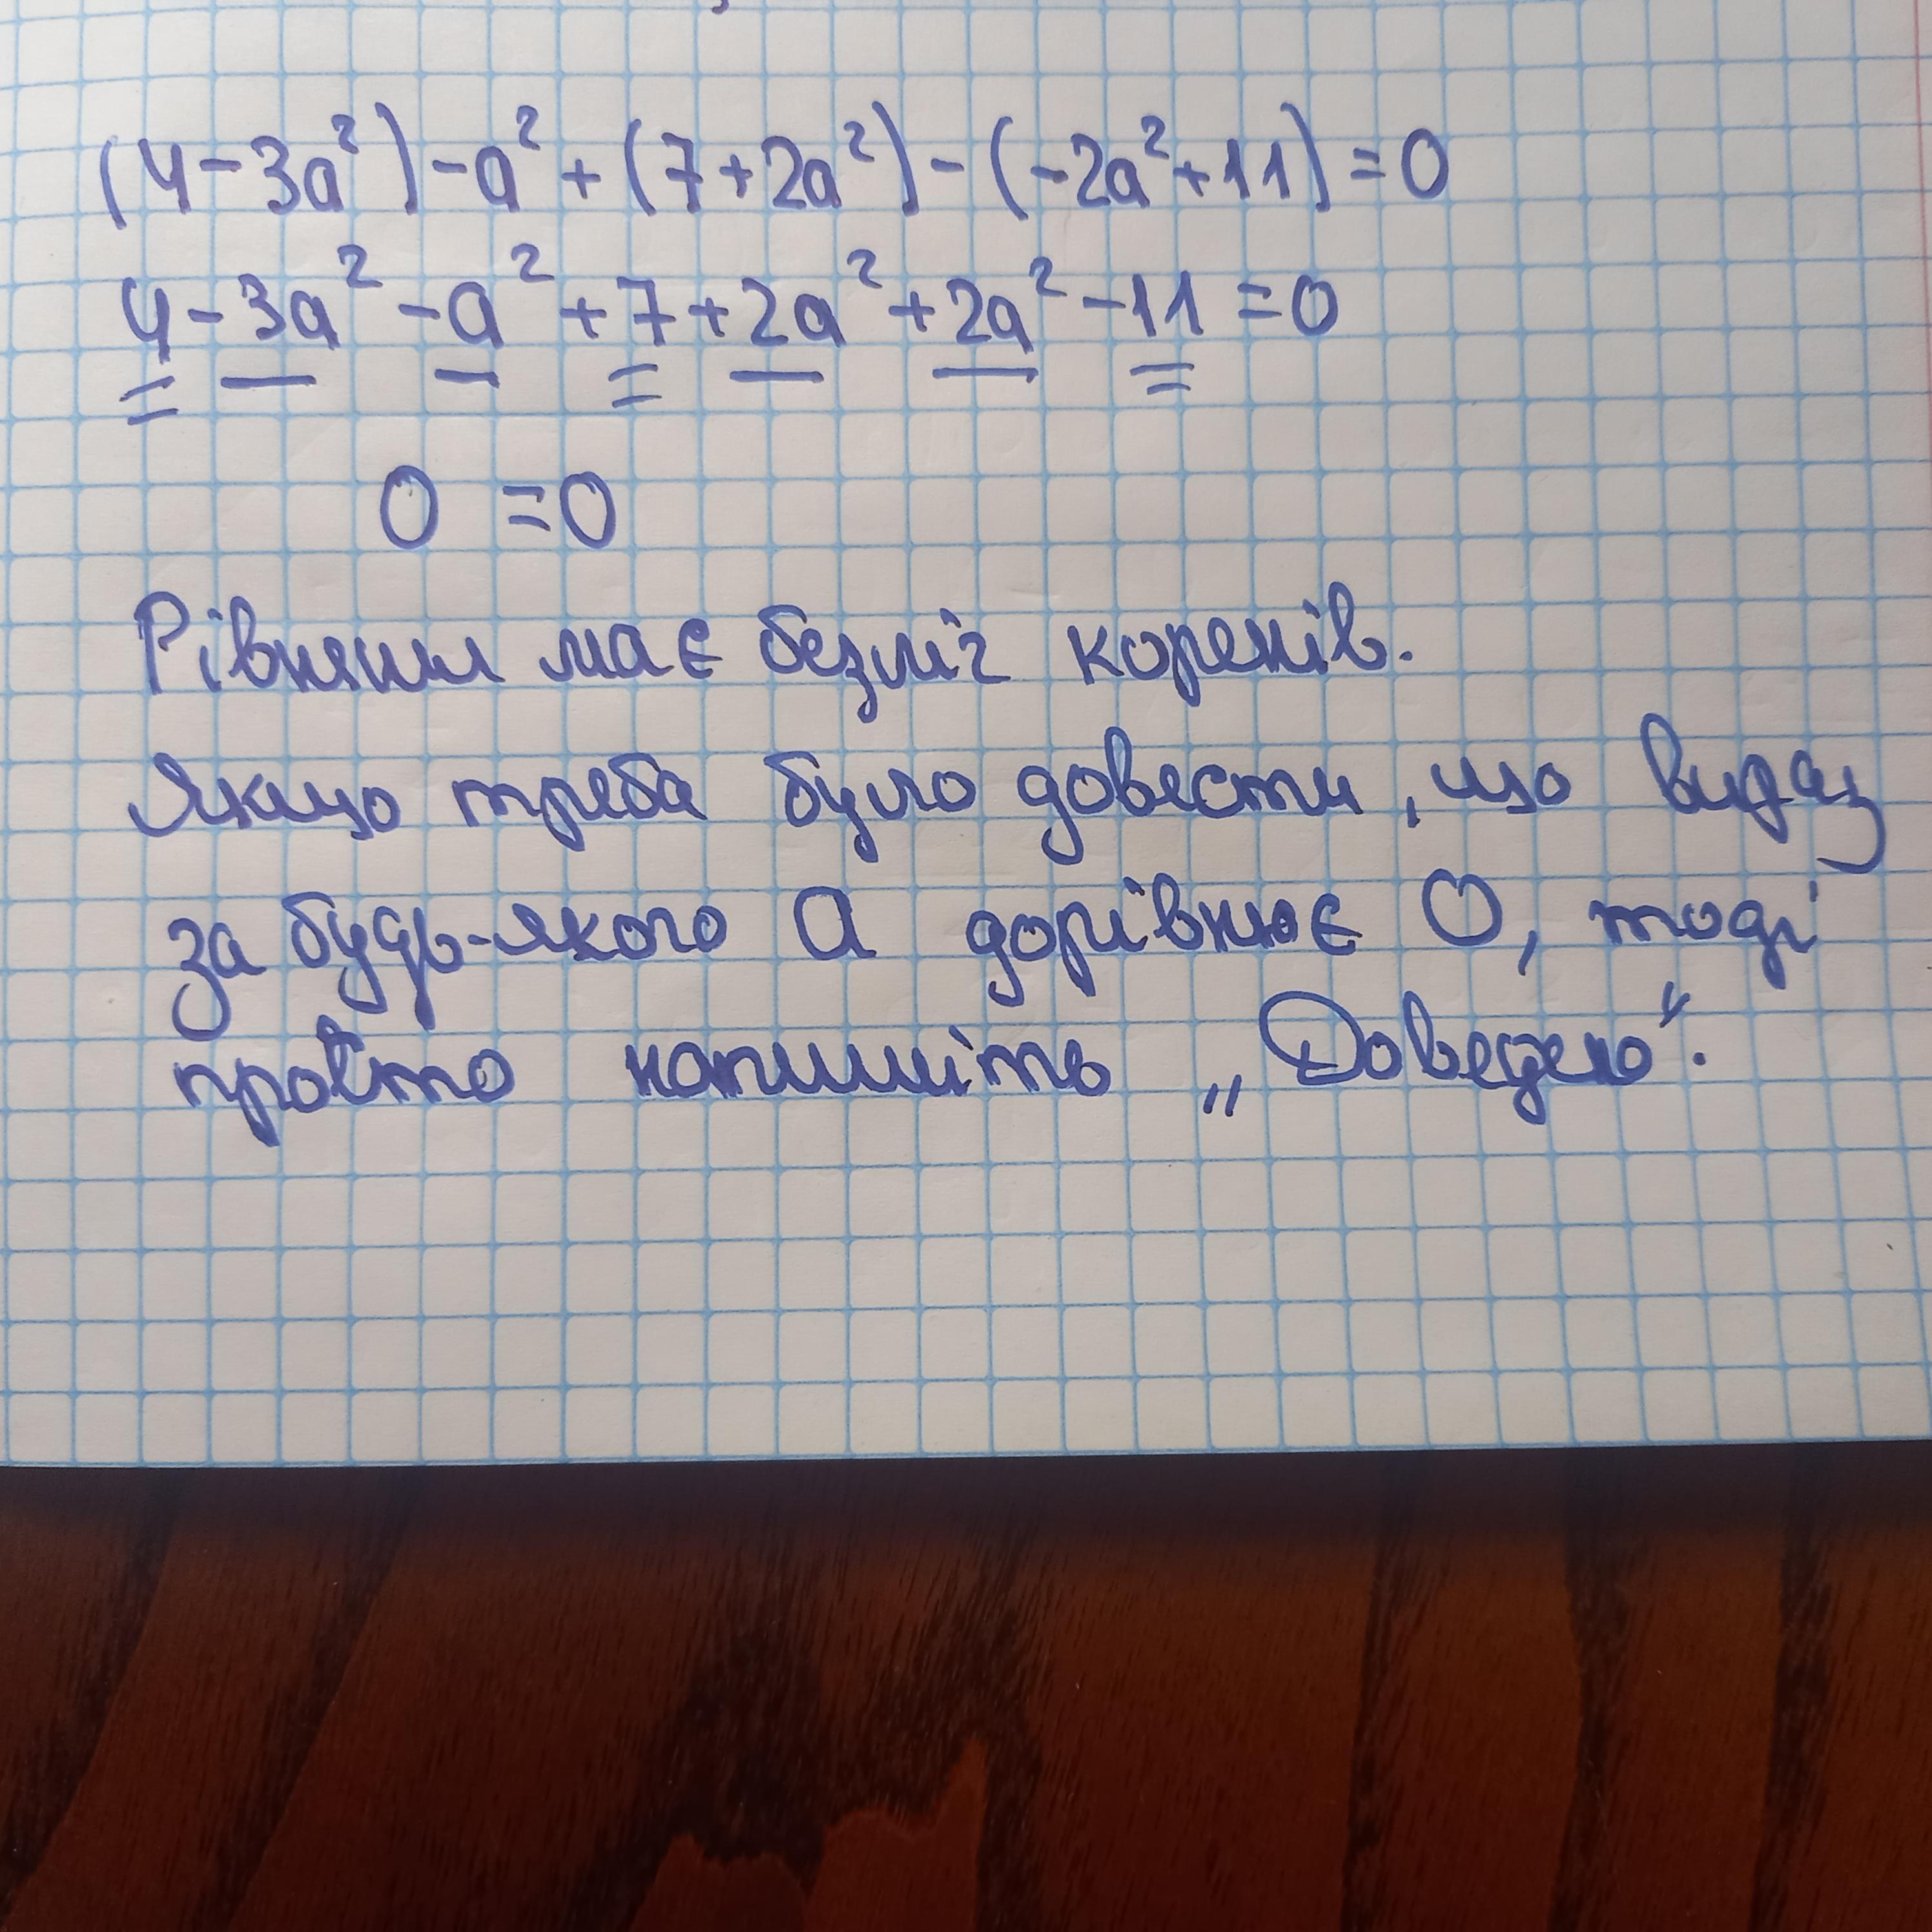 (4-3a²)-a²+(7+2a²)-(-2a²+11)=0
4-3a²-a²+7+2a²+2a²-11=0
0=0
Рівняння має безліч коренів.
Якщо треба було довести, що вираз
за будь-якого a дорівнює 0, тоді
просто напишіть „Доведено".